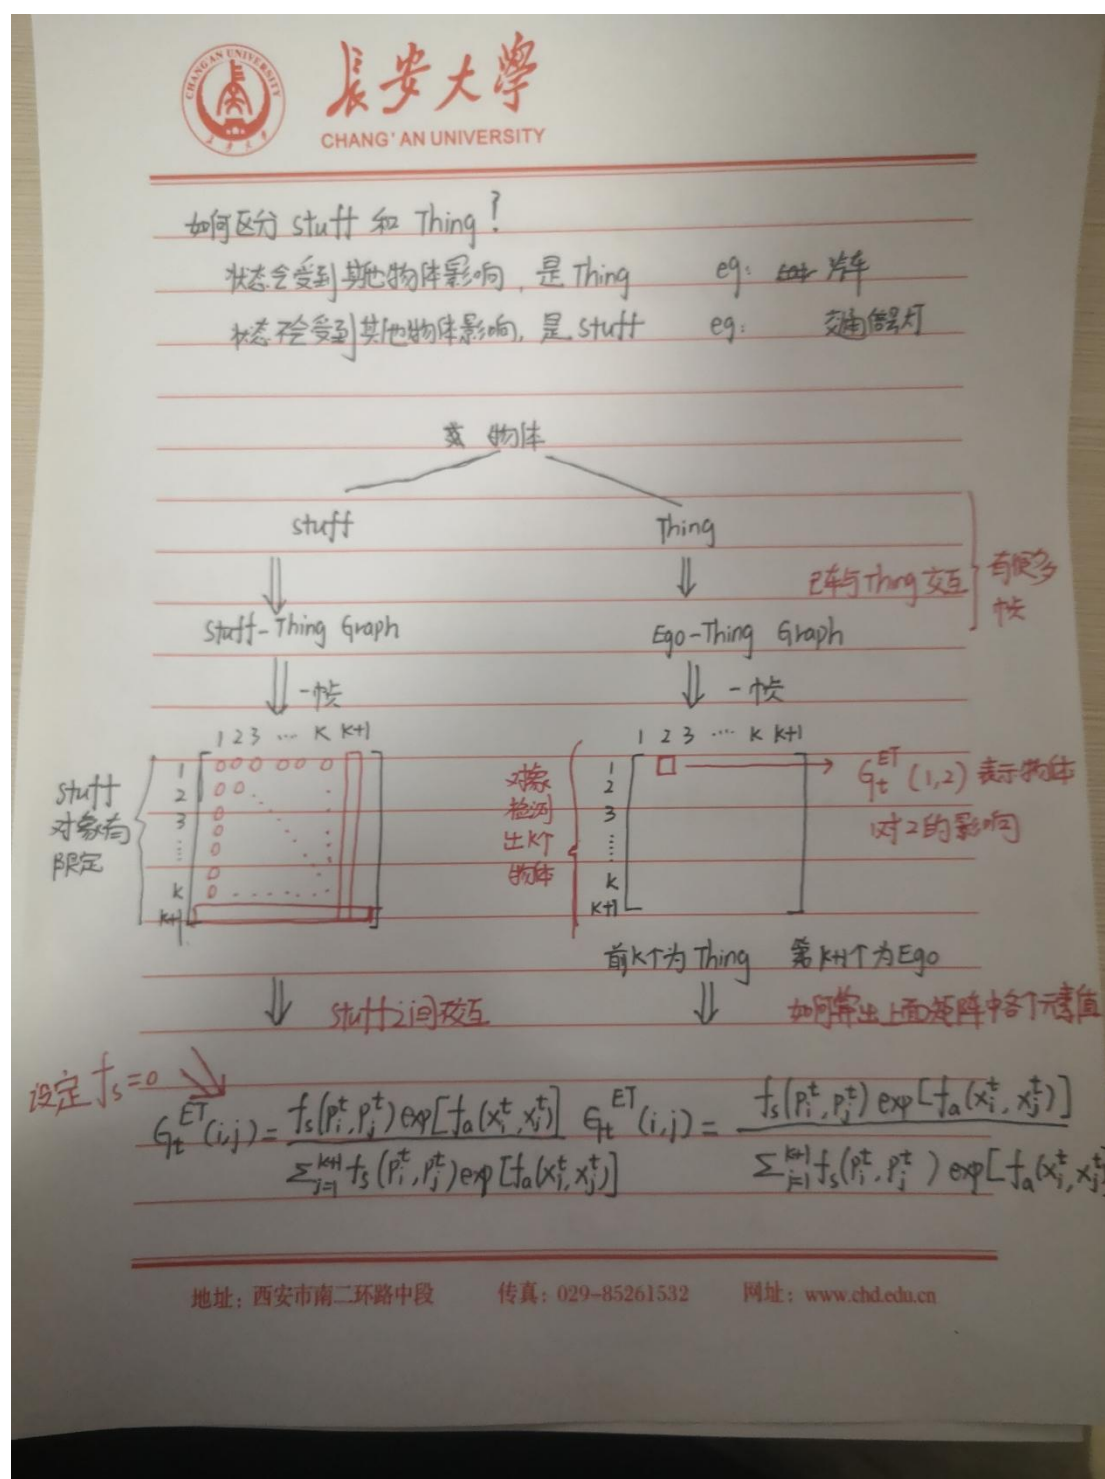 CHANGAN UNIVERSITY
長安大學
CHANG'AN UNIVERSITY
如何区分 stuff 和 Thing?
状态会受到其他物体影响,是Thing eg: 汽车
状态不会受到其他物体影响,是stuff eg: 交通信号灯
物体
stuff Thing
己车与Thing交互
有很多
帧
Stuff-Thing Graph Ego-Thing Graph
一帧 一帧
1 2 3 … K K+1
1
2
3
⋮
K
K+1
stuff
对象有
限定
对象
检测
出K个
物体
1 2 3 … K K+1
1
2
3
⋮
K
K+1
G_t^{ET}(1,2) 表示物体
1对2的影响
前K个为Thing 第K+1个为Ego
stuff之间交互 如何算出上面矩阵中各个元素值
设定 f_s=0
G_t^{ET}(i,j) = \frac{f_s(p_i^t, p_j^t) exp[f_a(x_i^t, x_j^t)]}{\sum_{j=1}^{k+1} f_s(p_i^t, p_j^t) exp[f_a(x_i^t, x_j^t)]}
G_t^{ET}(i,j) = \frac{f_s(p_i^t, p_j^t) exp[f_a(x_i^t, x_j^t)]}{\sum_{j=1}^{k+1} f_s(p_i^t, p_j^t) exp[f_a(x_i^t, x_j^t)]}
地址：西安市南二环路中段 传真：029-85261532 网址：www.chd.edu.cn